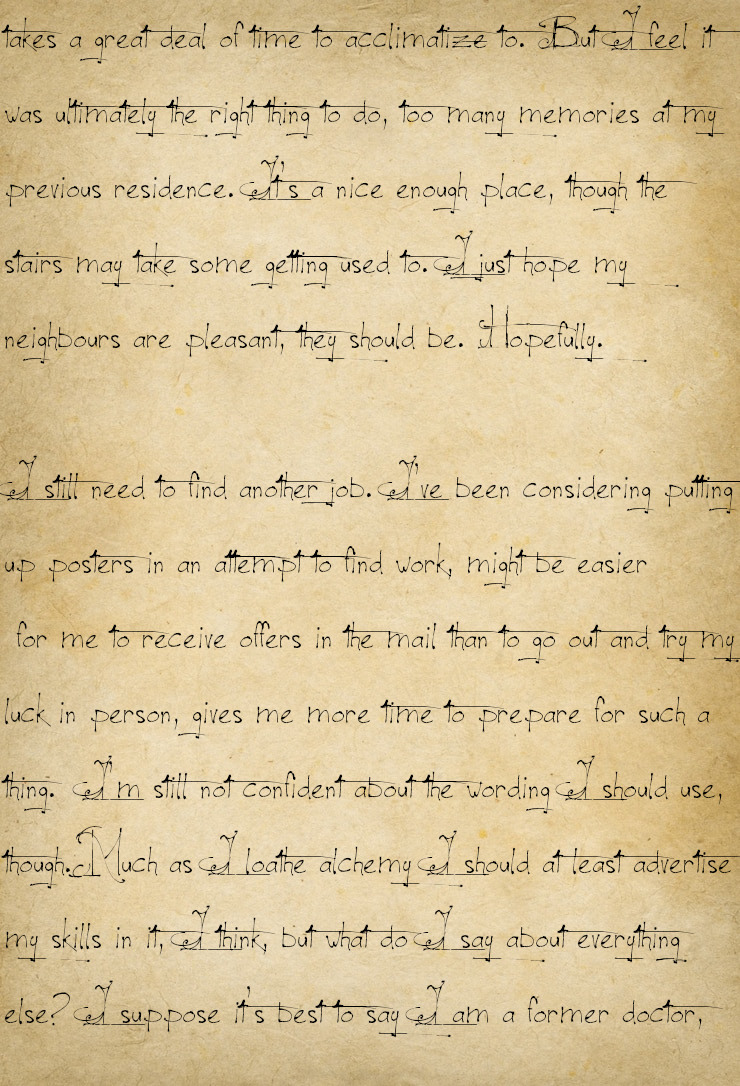 takes a great deal of time to acclimatize to. But I feel it
was ultimately the right thing to do, too many memories at my
previous residence. It's a nice enough place, though the
stairs may take some getting used to. I just hope my
neighbours are pleasant, they should be. Hopefully.
I still need to find another job. I've been considering putting
up posters in an attempt to find work, might be easier
for me to receive offers in the mail than to go out and try my
luck in person, gives me more time to prepare for such a
thing. I'm still not confident about the wording I should use,
though. Much as I loathe alchemy I should at least advertise
my skills in it, I think, but what do I say about everything
else? I suppose it's best to say I am a former doctor,